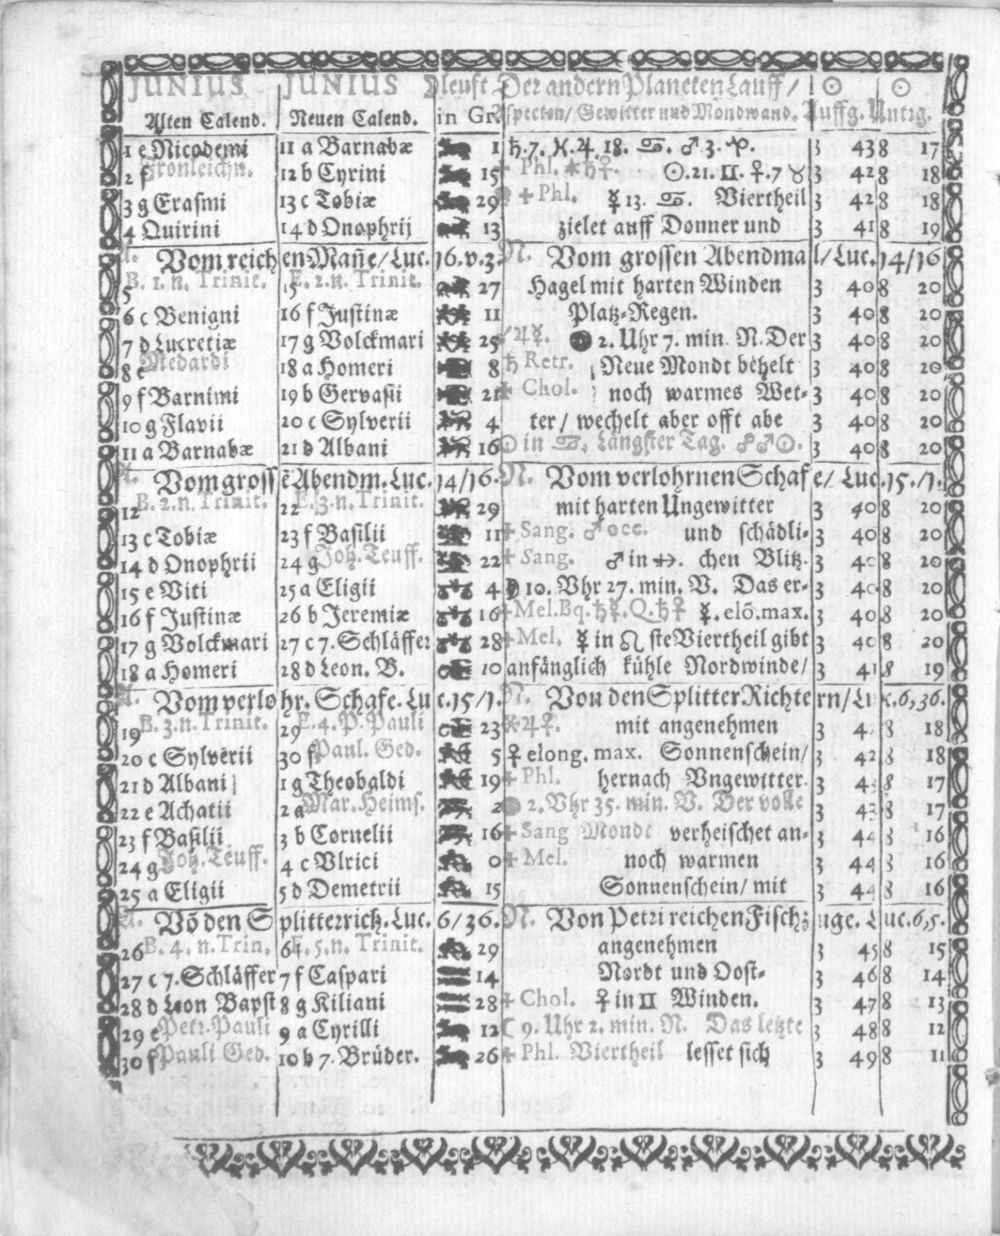 JUNIUS JUNIUS Der andern Planeten Lauff / ☉ ☉
Alten Calend. Neuen Calend. in Gr. Aspecten / Gewitter und Mondwand. Auffg. Untrg.
1 e Nicodemi 11 a Barnabæ 1 ♄.7. ♓.♃. 18. ♋. ♂ 3. ♈. 3 43 8 17
2 f Fronleichn. 12 b Cyrini 15 Phl. ✶♄♀. ☉.21. II. ♀.7 ♉ 3 42 8 18
3 g Erasmi 13 c Tobiæ 29 ✝ Phl. ☿ 13. ♋. Viertheil 3 42 8 18
4 Quirini 14 d Onophrij 13 zielet auff Donner und 3 41 8 19
A. Vom reichen Mañe / Luc. 16. v. 3 N. Vom grossen Abendmal / Luc. 14/16
5 B. 1. n. Trinit. 15 E. 2. n. Trinit. 27 Hagel mit harten Winden 3 40 8 20
6 c Benigni 16 f Justinæ 11 Platz-Regen. 3 40 8 20
7 d Lucretiæ 17 g Volckmari 25 ♃☿. ● 2. Uhr 7. min. N. Der 3 40 8 20
8 e Medardi 18 a Homeri 8 ♄ Retr. Neue Mondt behelt 3 40 8 20
9 f Barnimi 19 b Gervasii 21 ✝ Chol. noch warmes Wet- 3 40 8 20
10 g Flavii 20 c Sylverii 4 ter / wechelt aber offt abe 3 40 8 20
11 a Barnabæ 21 d Albani 16 ☉ in ♋. Längster Tag. ☍♂☉. 3 40 8 20
A. Vom gross ẽ Abendm. Luc. 14/16. N. Vom verlohrnen Schafe / Luc. 15. /1.
12 B. 2. n. Trinit. 22 E. 3. n. Trinit. 29 mit harten Ungewitter 3 40 8 20
13 c Tobiæ 23 f Basilii 11 ✝ Sang. ♂ occ. und schädli- 3 40 8 20
14 d Onophrii 24 g Joh. Teuff. 22 ✝ Sang. ♂ in ♐. chen Blitz. 3 40 8 20
15 e Viti 25 a Eligii 4 ☽ 10. Vhr 27. min. V. Das er- 3 40 8 20
16 f Justinæ 26 b Jeremiæ 16 ✝ Mel. Bq. ♄☿. Q. ♄♀ ☿. elõ. max. 3 40 8 20
17 g Volckmari 27 c 7. Schläffer 28 ✝ Mel. ☿ in ♌ ste Viertheil gibt 3 40 8 20
18 a Homeri 28 d Leon. B. 10 anfänglich kühle Nordwinde / 3 41 8 19
A. Vom verlohr. Schafe. Luc. 15/1. N. Von den Splitter Richtern / Luc. 6,36.
19 B. 3. n. Trinit. 29 E. 4. P. Pauli 23 ♃♀. mit angenehmen 3 8 18
20 c Sylverii 30 f Paul. Ged. 5 ♀ elong. max. Sonnenschein / 3 42 8 18
21 d Albani 1 g Theobaldi 19 ✝ Phl. hernach Vngewitter. 3 8 17
22 e Achatii 2 a Mar. Heims. 2 2. Vhr 35. min. V. Der volle 3 8 17
23 f Basilii 3 b Cornelii 16 ✝ Sang Mondt verheischet an- 3 8 16
24 g Joh. Teuff. 4 c Vlrici 0 ✝ Mel. noch warmen 3 44 8 16
25 a Eligii 5 d Demetrii 15 Sonnenschein / mit 3 8 16
A. Võ den Splitterricht. Luc. 6/36. N. Von Petri reichen Fischzuge. Luc. 6,5.
26 B. 4. n. Trin. 6 E. 5. n. Trinit. 29 angenehmen 3 45 8 15
27 c 7. Schläffer 7 f Caspari 14 Nordt und Oost- 3 46 8 14
28 d Leon Bapst 8 g Kiliani 28 ✝ Chol. ♀ in II Winden. 3 47 8 13
29 e Petr. Pauli 9 a Cyrilli 12 ☾ 9. Uhr 2. min. N. Das letzte 3 48 8 12
30 f Pauli Ged. 10 b 7. Brüder. 26 ✝ Phl. Viertheil lesset sich 3 49 8 11